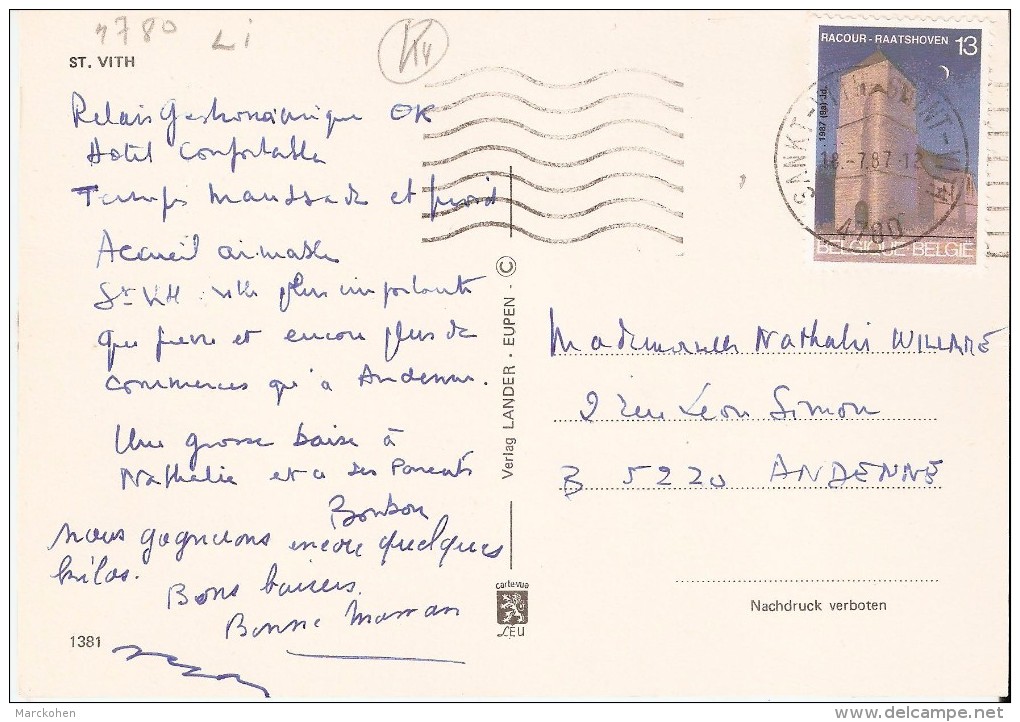 4780 Li
ST. VITH
Relais Gastronomique OK
Hotel Confortable
Temps Maussade et froid
Accueil aimable
St Vith : ville plus importante
que et encore plus de
commerces qu'à Andenne.
Une grosse baise à
Nathalie et à ses Parents
Bonbon
Nous gagnerons encore quelques
kilos.
Bons baisers.
Bonne Maman
1381
Verlag LANDER · EUPEN · ©
carte-vue
LEU
RACOUR - RAATSHOVEN 13
1987
18.-7.87.12
4780
BELGIQUE-BELGIE
Mademoiselle Nathalie WILLAME
2 rue Léon Simon
B 5220 ANDENNE
Nachdruck verboten
Marckohen
www.delcampe.net